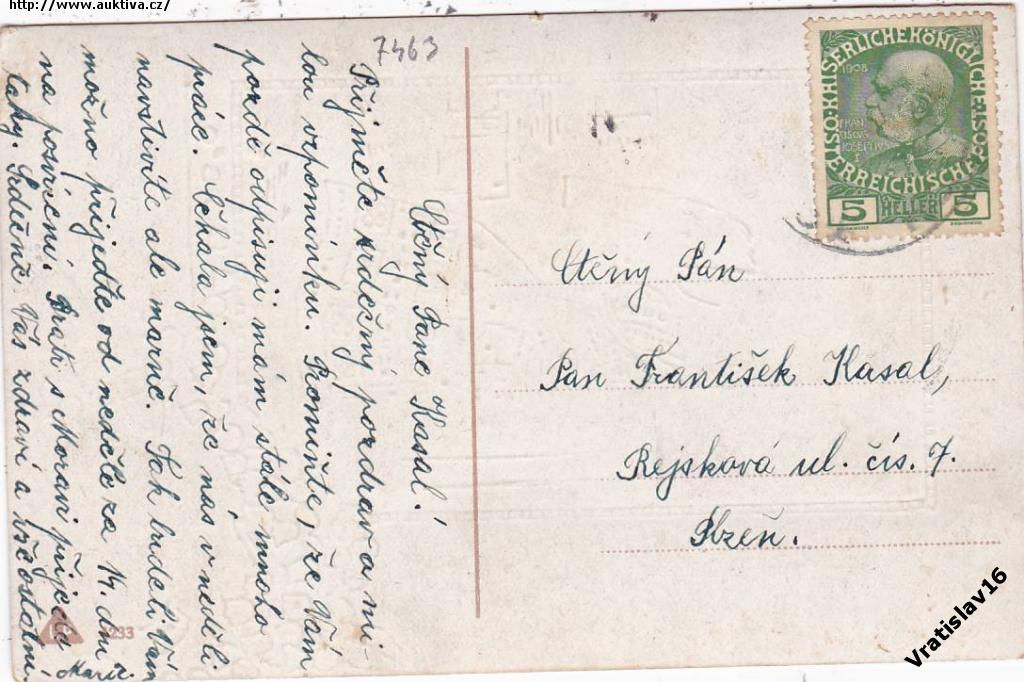 http://www.auktiva.cz/
7463
Ctěný Pane Kasal!
Přijměte srdečný pozdrav a mi-
lou vzpomínku. Promiňte, že Vám
pozdě odpisuji mám stále mnoho
práce. Čekala jsem, že nás v neděli
navštívíte ale marně. Tak budeli Vám
možno přijeďte od neděle za 14. dní
na posvícení. Bratr s Moravi přijede
taky. Srdečně Vás zdraví a
Marie.
5233
KAISERLICHEKÖNIGLICHE
ÖSTERREICHISCHE POST
1908
FRANCISCVS
JOSEPHVS
I
5 HELLER 5
Ctěný Pán
Pan František Kasal,
Rejsková ul. čís. 7.
Plzeň.
Vratislav16